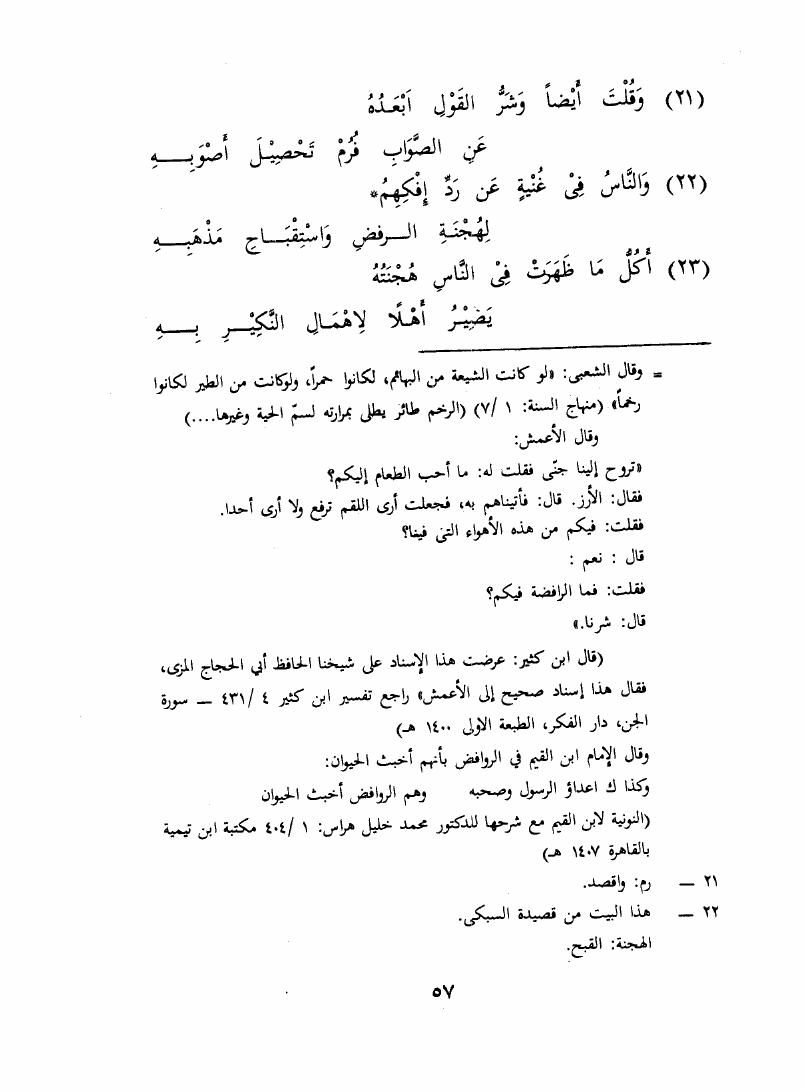 (٢١) وَقُلْتَ أَيْضاً وَشَرُّ القَوْلِ اَبْعَدُهُ
عَنِ الصَّوَابِ فُرُمْ تَحْصِيْلَ أَصْوَبِـــهِ
(٢٢) وَالنَّاسُ فِىْ غُنْيَةٍ عَن رَدِّ إِفْكِهِمُ*
لِهُجْنَـةِ الـــرفضِ وَاسْتِقْبَـــاحِ مَذْهَبِـــهِ
(٢٣) أَكُلُّ مَا ظَهَرَتْ فِىْ النَّاسِ هُجْنَتُهُ
يَصِيْـرُ أَهْـلًا لِاهْمَـالِ النَّكِيْـــرِ بِـــهِ
= وقال الشعبى: «لو كانت الشيعة من البهائم، لكانوا حمراً، ولوكانت من الطير لكانوا
رخماً» (منهاج السنة: ١ /٧) (الرخم طائر يطلى بمرارته لسمّ الحية وغيرها....)
وقال الأعمش:
«تروح إلينا جنّى فقلت له: ما أحب الطعام إليكم؟
فقال: الأرز. قال: فأتيناهم به، فجعلت أرى اللقم ترفع ولا أرى أحدا.
فقلت: فيكم من هذه الأهواء التى فينا؟
قال : نعم :
فقلت: فما الرافضة فيكم؟
قال: شرنا.»
(قال ابن كثير: عرضت هذا الإسناد على شيخنا الحافظ أبي الحجاج المزى،
فقال هذا إسناد صحيح إلى الأعمش» راجع تفسير ابن كثير ٤ /٤٣١ — سورة
الجن، دار الفكر، الطبعة الاولى ١٤٠٠ هـ)
وقال الإمام ابن القيم في الروافض بأنهم أخبث الحيوان:
وكذا ك اعداؤ الرسول وصحبه وهم الروافض أخبث الحيوان
(النونية لابن القيم مع شرحها للدكتور محمد خليل هراس: ١ /٤٠٤ مكتبة ابن تيمية
بالقاهرة ١٤٠٧ هـ)
٢١ — رم: واقصد.
٢٢ — هذا البيت من قصيدة السبكى.
الهجنة: القبح.
٥٧